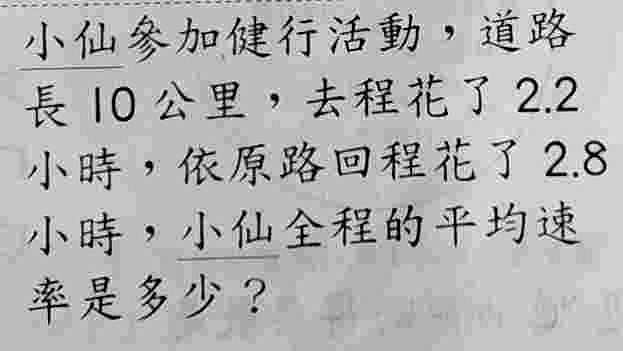 小仙參加健行活動，道路
長 10 公里，去程花了 2.2
小時，依原路回程花了 2.8
小時，小仙全程的平均速
率是多少？